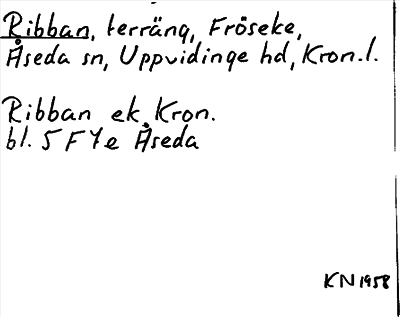 Ribban, terräng, Fröseke,
Åseda sn, Uppvidinge hd, Kron.l.
Ribban ek. Kron.
bl. 5 F Y e Åseda
KN 1958